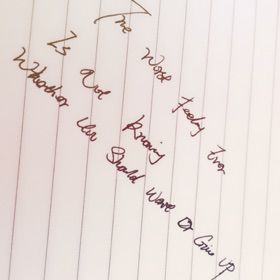 The Worse feeling Ever
Is not knowing
Whether You Should Wave or Give up